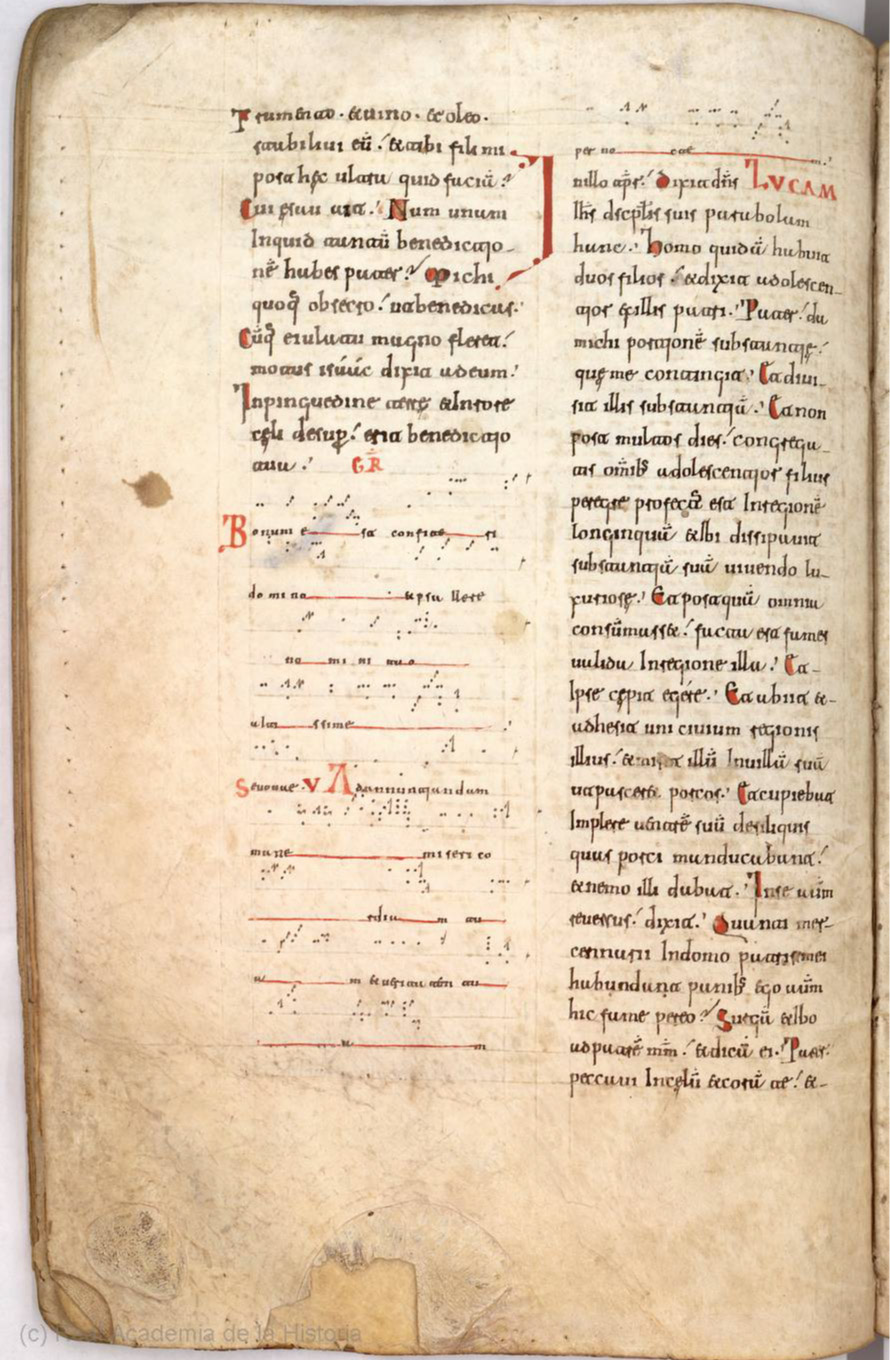 Frumento · & uino · & oleo ·
stabiliui eū. & tibi fili mi
post hęc ultra quid faciā?
Cui esau ait. Num unam
Inquid tantū benedictio
nē habes pater? Michi
quoq obsecro ut benedicas.
Cūq eiulatu magno fleret.
motus isáác dixit ad eum.
Inpinguedine terrę & Inrore
cęli desup erit benedictio
tua. GR
Bonum e st confite ri
do mi no & psa llere
no mi ni tu o
alti ssime
Seuouae V Adannuntiandum
mane miseri co
rdia m tu
a m & ueritatem tu
a m
per no cte m.
In illo tpr. Dixit dns LVCAM
Ihs discplis suis parabolam
hanc. Homo quidā habuit
duos filios. & dixit adolescen
tior ex illis patri. Pater. da
michi portionē substantię.
quę me contingit. Et diui
sit illis substantiā. Et non
post multos dies. congrega
tis omib adolescentior filius
peregre profect est Inregionē
longinquā & Ibi dissipauit
substantiā suā uiuendo lu
xuriosę. Et postquā omnia
consūmass&. facta est fames
ualida Inregione illa. Et
Ipse cępit egére. Et abiit &
adhesit uni ciuium regionis
illius. & misit illū Inuillā suā
utpascer& porcos. Et cupiebat
Implere uentrē suū desiliquis
quas porci manducabant.
& nemo illi dabat. Inse autm
reuersus. dixit. Quanti mer
cennarii Indomo patris mei
habundant panib ego autm
hic fame pereo? Surgā & Ibo
ad patrē mm. & dicā ei. Pater
peccaui Incęlū & corā te. &
(c) Real Academia de la Historia